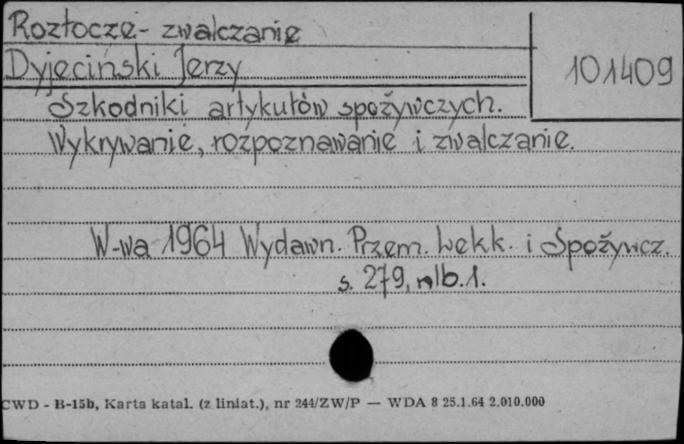 Roztocze - zwalczanie
Dyjeciński Jerzy
101409
Szkodniki artykułów spożywczych.
Wykrywanie, rozpoznawanie i zwalczanie.
W-wa 1964 Wydawn. Przem. Lekk. i Spożywcz.
s. 279, nlb. 1.
CWD - B-15b, Karta katal. (z liniat.), nr 244/ZW/P — WDA 8 25.1.64 2.010.000